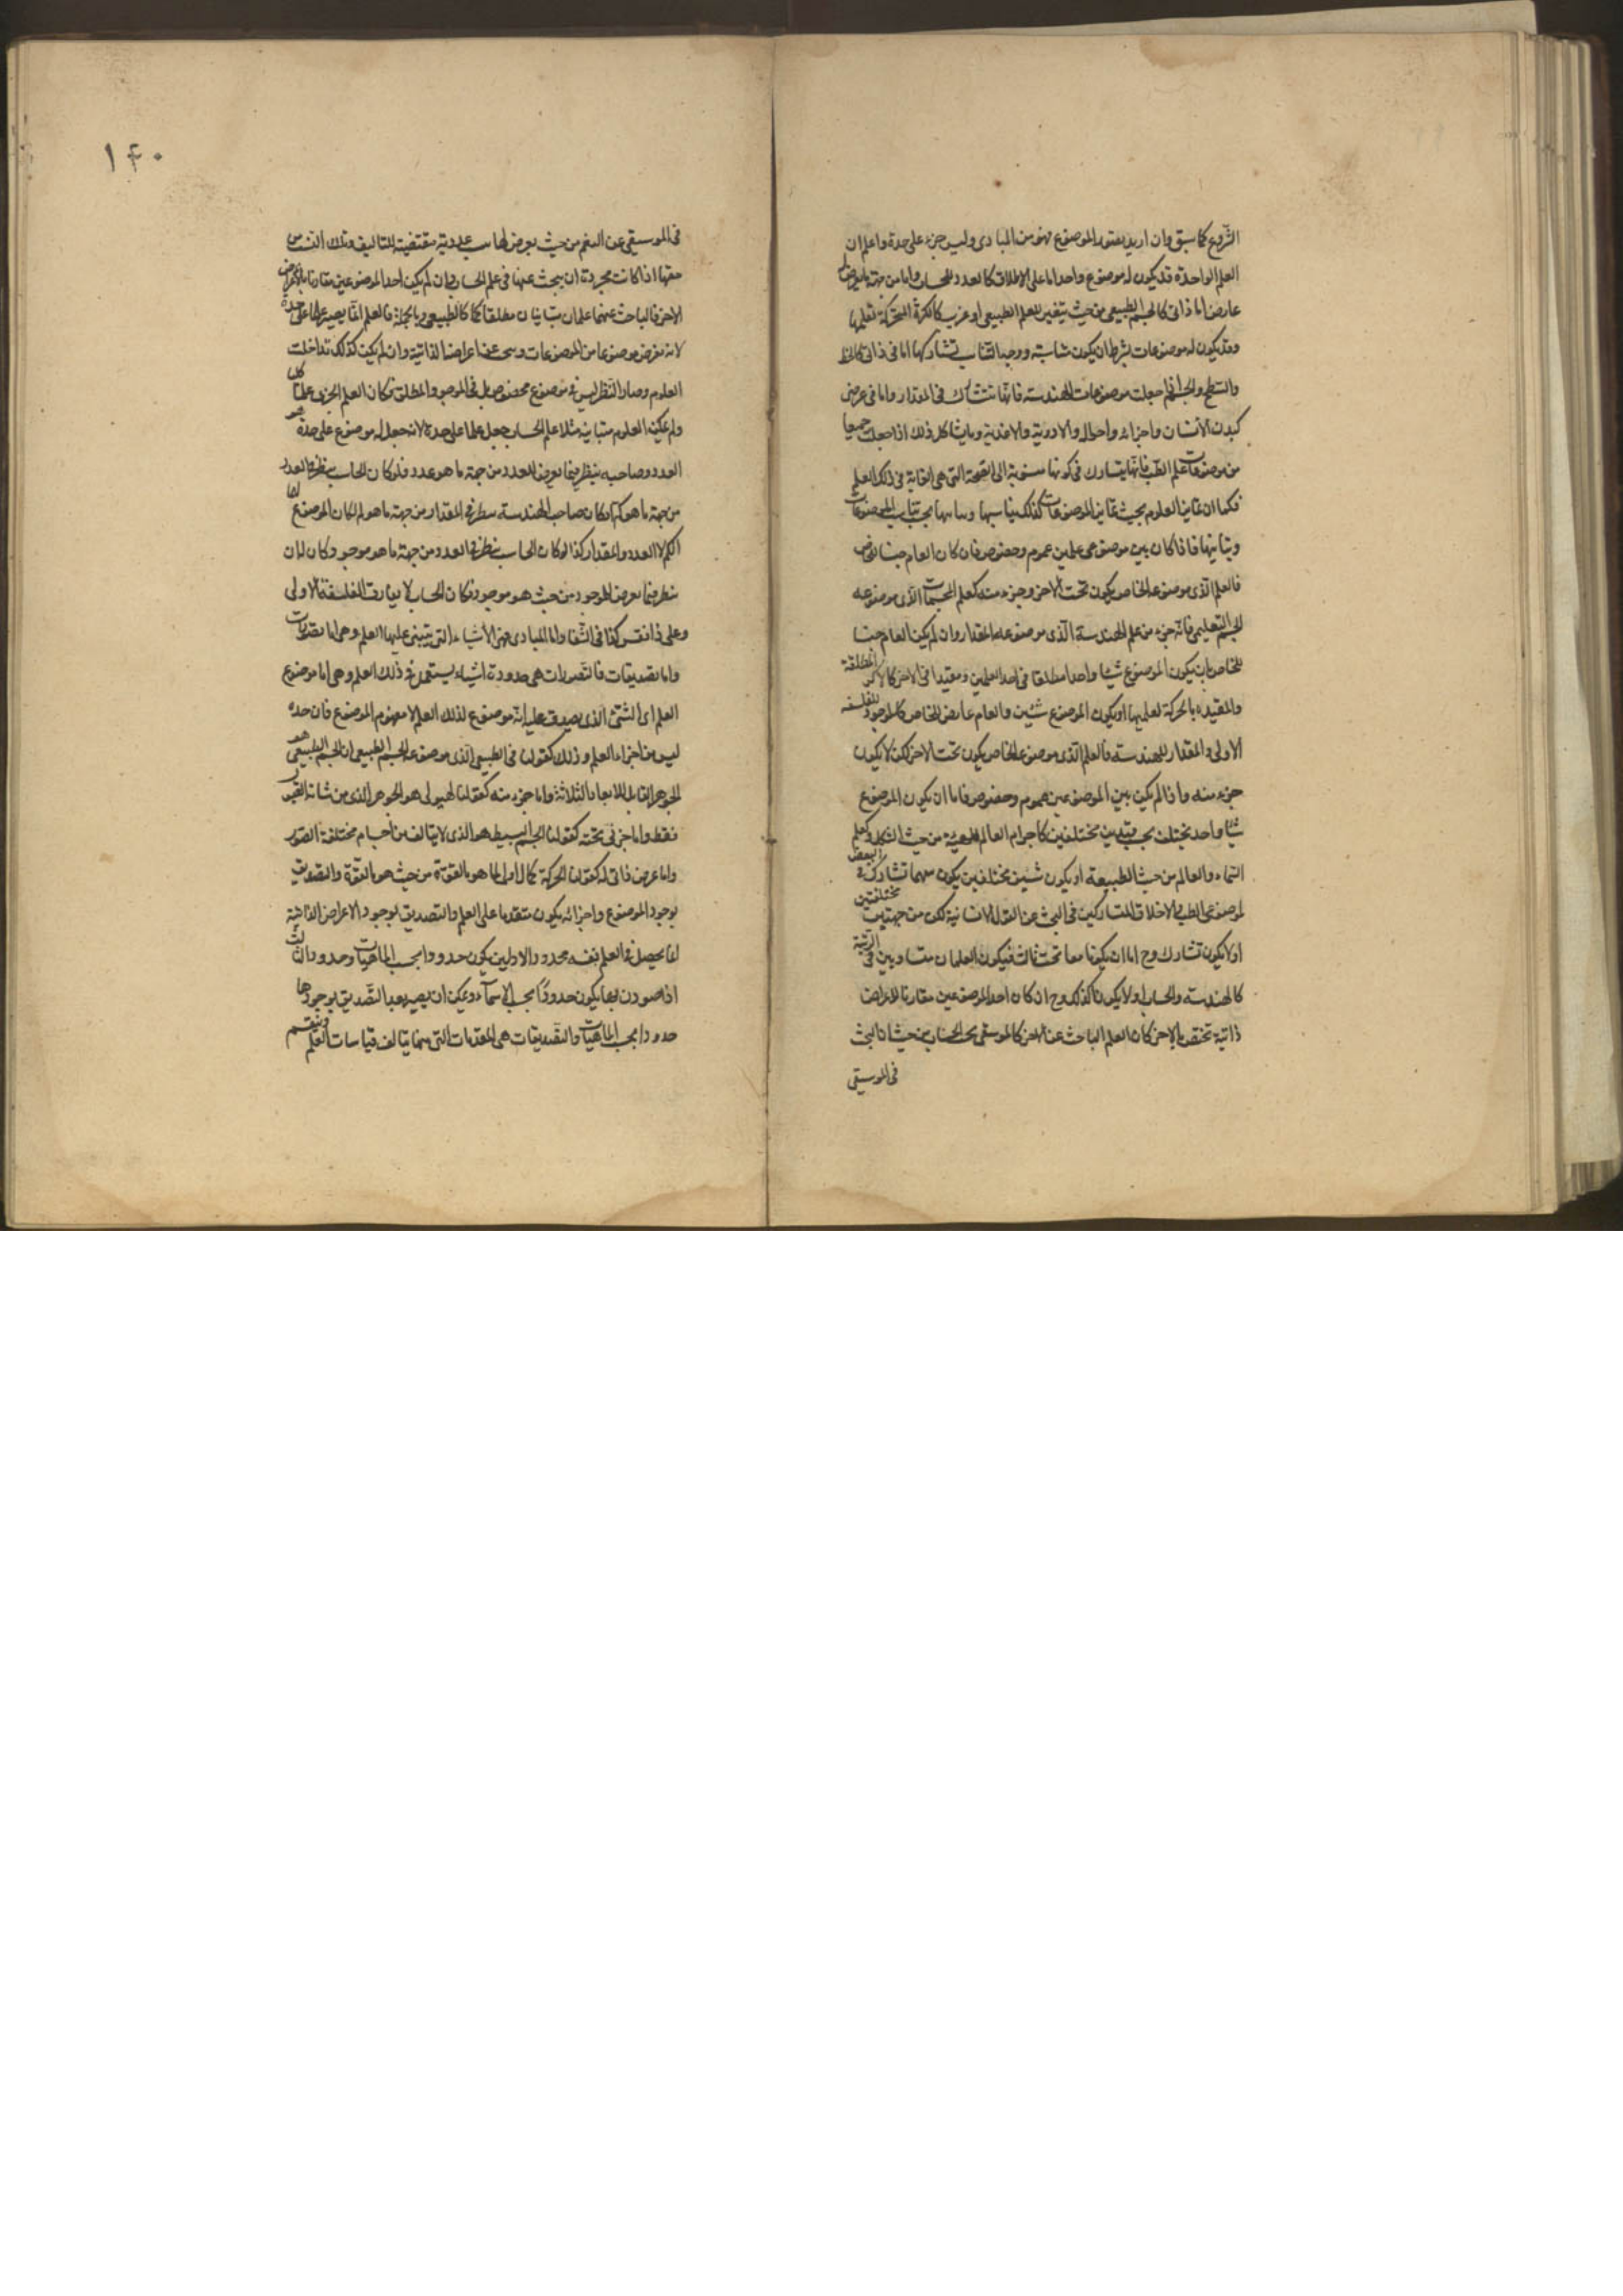 الشروع كما سبق وان اريد بعقود الموضوع فهو من المبادى وليس جزء على حدة واعلم ان
العلم الواحد قد يكون له موضوع واحد اما على الاطلاق كالعدد للحساب واما من جهة ما يعرض له
عارض اما ذاتى كالجسم الطبيعى من حيث يتغير للعلم الطبيعى او غريب كالكرة المتحركة لعلمها
وقد يكون له موضوعات بشرط ان يكون متناسبة ووجه التناسب تشاركها اما فى ذاتى كالخط
والسطح والجسم اذا جعلت موضوعات للهندسة فانها تتشارك فى المقدار واما فى عرضى
كبدن الانسان واجزائه واحواله والادوية والاغذية وما يشاكل ذلك اذا جعلت جميعا
من موضوعات علم الطب فانها يتشارك فى كونها منسوبة الى الصحة التى هى الغاية فى ذلك العلم
فكما ان تمايز العلوم بحسب تمايز الموضوعات كذلك تناسبها وتباينها بحسب تناسب الموضوعات
وتباينها فاذا كان بين موضوعى علمين عموم وخصوص فان كان العام جنسا للخاص
فالعلم الذى موضوعه الخاص يكون تحت الاخر وجزء منه كعلم المجسمات الذى موضوعه
الجسم التعليمى فانه جزء من علم الهندسة الذى موضوعه المقدار وان لم يكن العام جنسا
للخاص بان يكون الموضوع شيئا واحدا مطلقا فى احد العلمين ومقيدا فى الاخر كالاكر المطلقة
والمقيدة بالحركة لعلميها او يكون الموضوع شيئين والعام عارض للخاص كالموجود للفلسفة
الاولى والمقدار للهندسة فالعلم الذى موضوعه الخاص يكون تحت الاخر لكن لا يكون
جزء منه واذا لم يكن بين الموضوعين عموم وخصوص فاما ان يكون الموضوع
شيئا واحد يختلف بحسب قيدين مختلفين كاجرام العالم للهيئة من حيث الشكل وكعلم
السماء والعالم من حيث الطبيعة او يكون شيئين مختلفين يكون بينهما تشارك فى البعض
لموضوعى الطب والاخلاق المتشاركين فى البحث عن القوى الانسانية لكن من جهتين مختلفتين
او لا يكون تشارك وح اما ان يكونا معا تحت ثالث فيكون العلمان متساويين فى الرتبة
كالهندسة والحساب او لا يكونا كذلك وح ان كان احد الموضوعين مقارنا لاعراض
ذاتية تختص بالاخر كان العلم الباحث عنه الاخر كالموسيقى تحت الحساب من حيث ان البحث
فى الموسيقى
١٤٠
فى الموسيقى عن النغم من حيث يعرض لها نسب عددية مقتضية للتاليف وتلك النسب من
حقها اذا كانت مجردة ان يبحث عنها فى علم الحساب وان لم يكن احد الموضوعين مقارنا لاعراض
الاخر فالباحث عنهما علمان متباينان مطلقا كالطبيعى وبالجملة فالعلم انما يصير علما على حدة
لانه يفرض موضوعا من الموضوعات ويبحث عن اعراضه الذاتية وان لم يكن كذلك تداخلت
العلوم وصار النظر ليس فى موضوع مخصوص بل فى الموجود المطلق فكان العلم الجزئى علما كليا
ولم يكن العلوم متباينة مثلا علم الحساب جعل علما على حدة لانه جعل له موضوع على حدة هو
العدد وصاحبه ينظر فيما يعرض للعدد من جهة ما هو عدد فلو كان الحاسب ينظر فى العدد
من جهة ما هو كم او كان صاحب الهندسة ينظر فى المقدار من جهة ما هو كم لكان الموضوع لهما
الكم لا العدد والمقدار كذا لو كان الحاسب ينظر فى العدد من جهة ما هو موجود كان له ان
ينظر فيما يعرض للموجود من حيث هو موجود فكان الحساب لا يفارق الفلسفة الاولى
وعلى ذا فقس كذا فى الشفا واما المبادى فهى الأشياء التى يبتنى عليها العلم وهى اما تصورات
واما تصديقات فالتصورات هى حدود اشياء يستعمل فى ذلك العلم وهى اما موضوع
العلم اى الشئ الذى يصدق عليه انه موضوع لذلك العلم لا مفهوم الموضوع فان حده
ليس من اجزاء العلم وذلك كقولنا فى الطبيعى الذى موضوعه الجسم الطبيعى ان الجسم الطبيعى هو
الجوهر القابل للابعاد الثلاثة واما جزء منه كقولنا الهيولى هو الجوهر الذى من شانه القبول
فقط واما جزئى تحته كقولنا الجسم البسيط هو الذى لا يتالف من اجسام مختلفة الصور
واما عرض ذاتى له كقولنا الحركة كمال اول لما هو بالقوة من حيث هو بالقوة والتصديق
بوجود الموضوع واجزائه يكون متقدما على العلم والتصديق بوجود الاعراض الذاتية
انما يحصل فى العلم نفسه فحدود الاولين يكون حدودا بحسب الماهيات وحدود الثالث
اذا صودر بها يكون حدودا بحسب الاسماء ويمكن ان يصير بعد التصديق بوجودها
حدودا بحسب الماهيات والتصديقات هى المقدمات التى منها يتالف قياسات العلم وينقسم